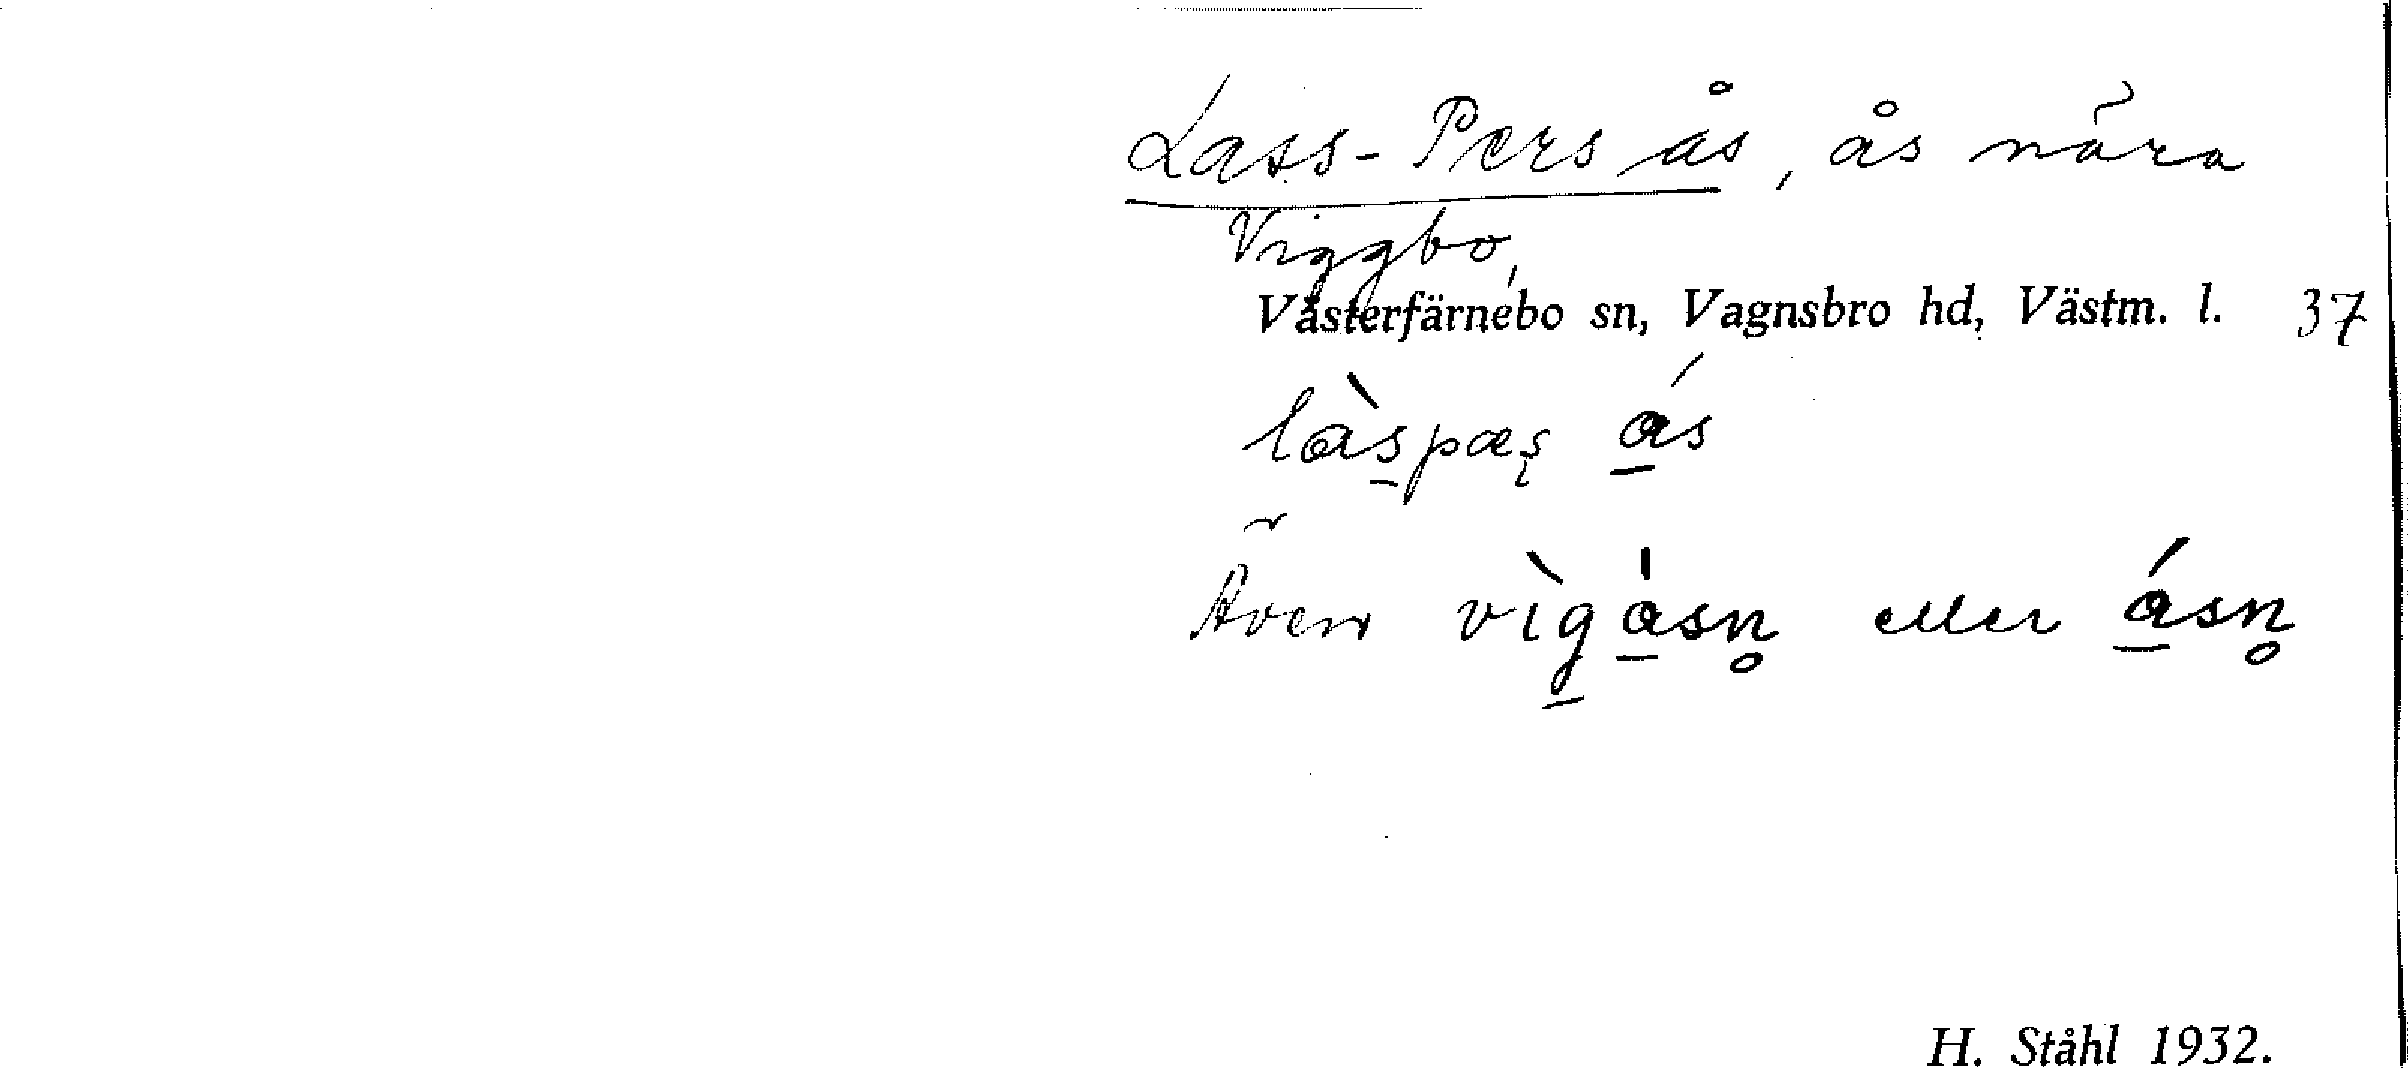 Lass-Pers ås, ås nära
Viggbo,
Västerfärnebo sn, Vagnsbro hd, Västm. l. 37
làs̱pæş á̱s
Även vìg̱a̱̍sn̥ eller á̱sn̥
H. Ståhl 1932.